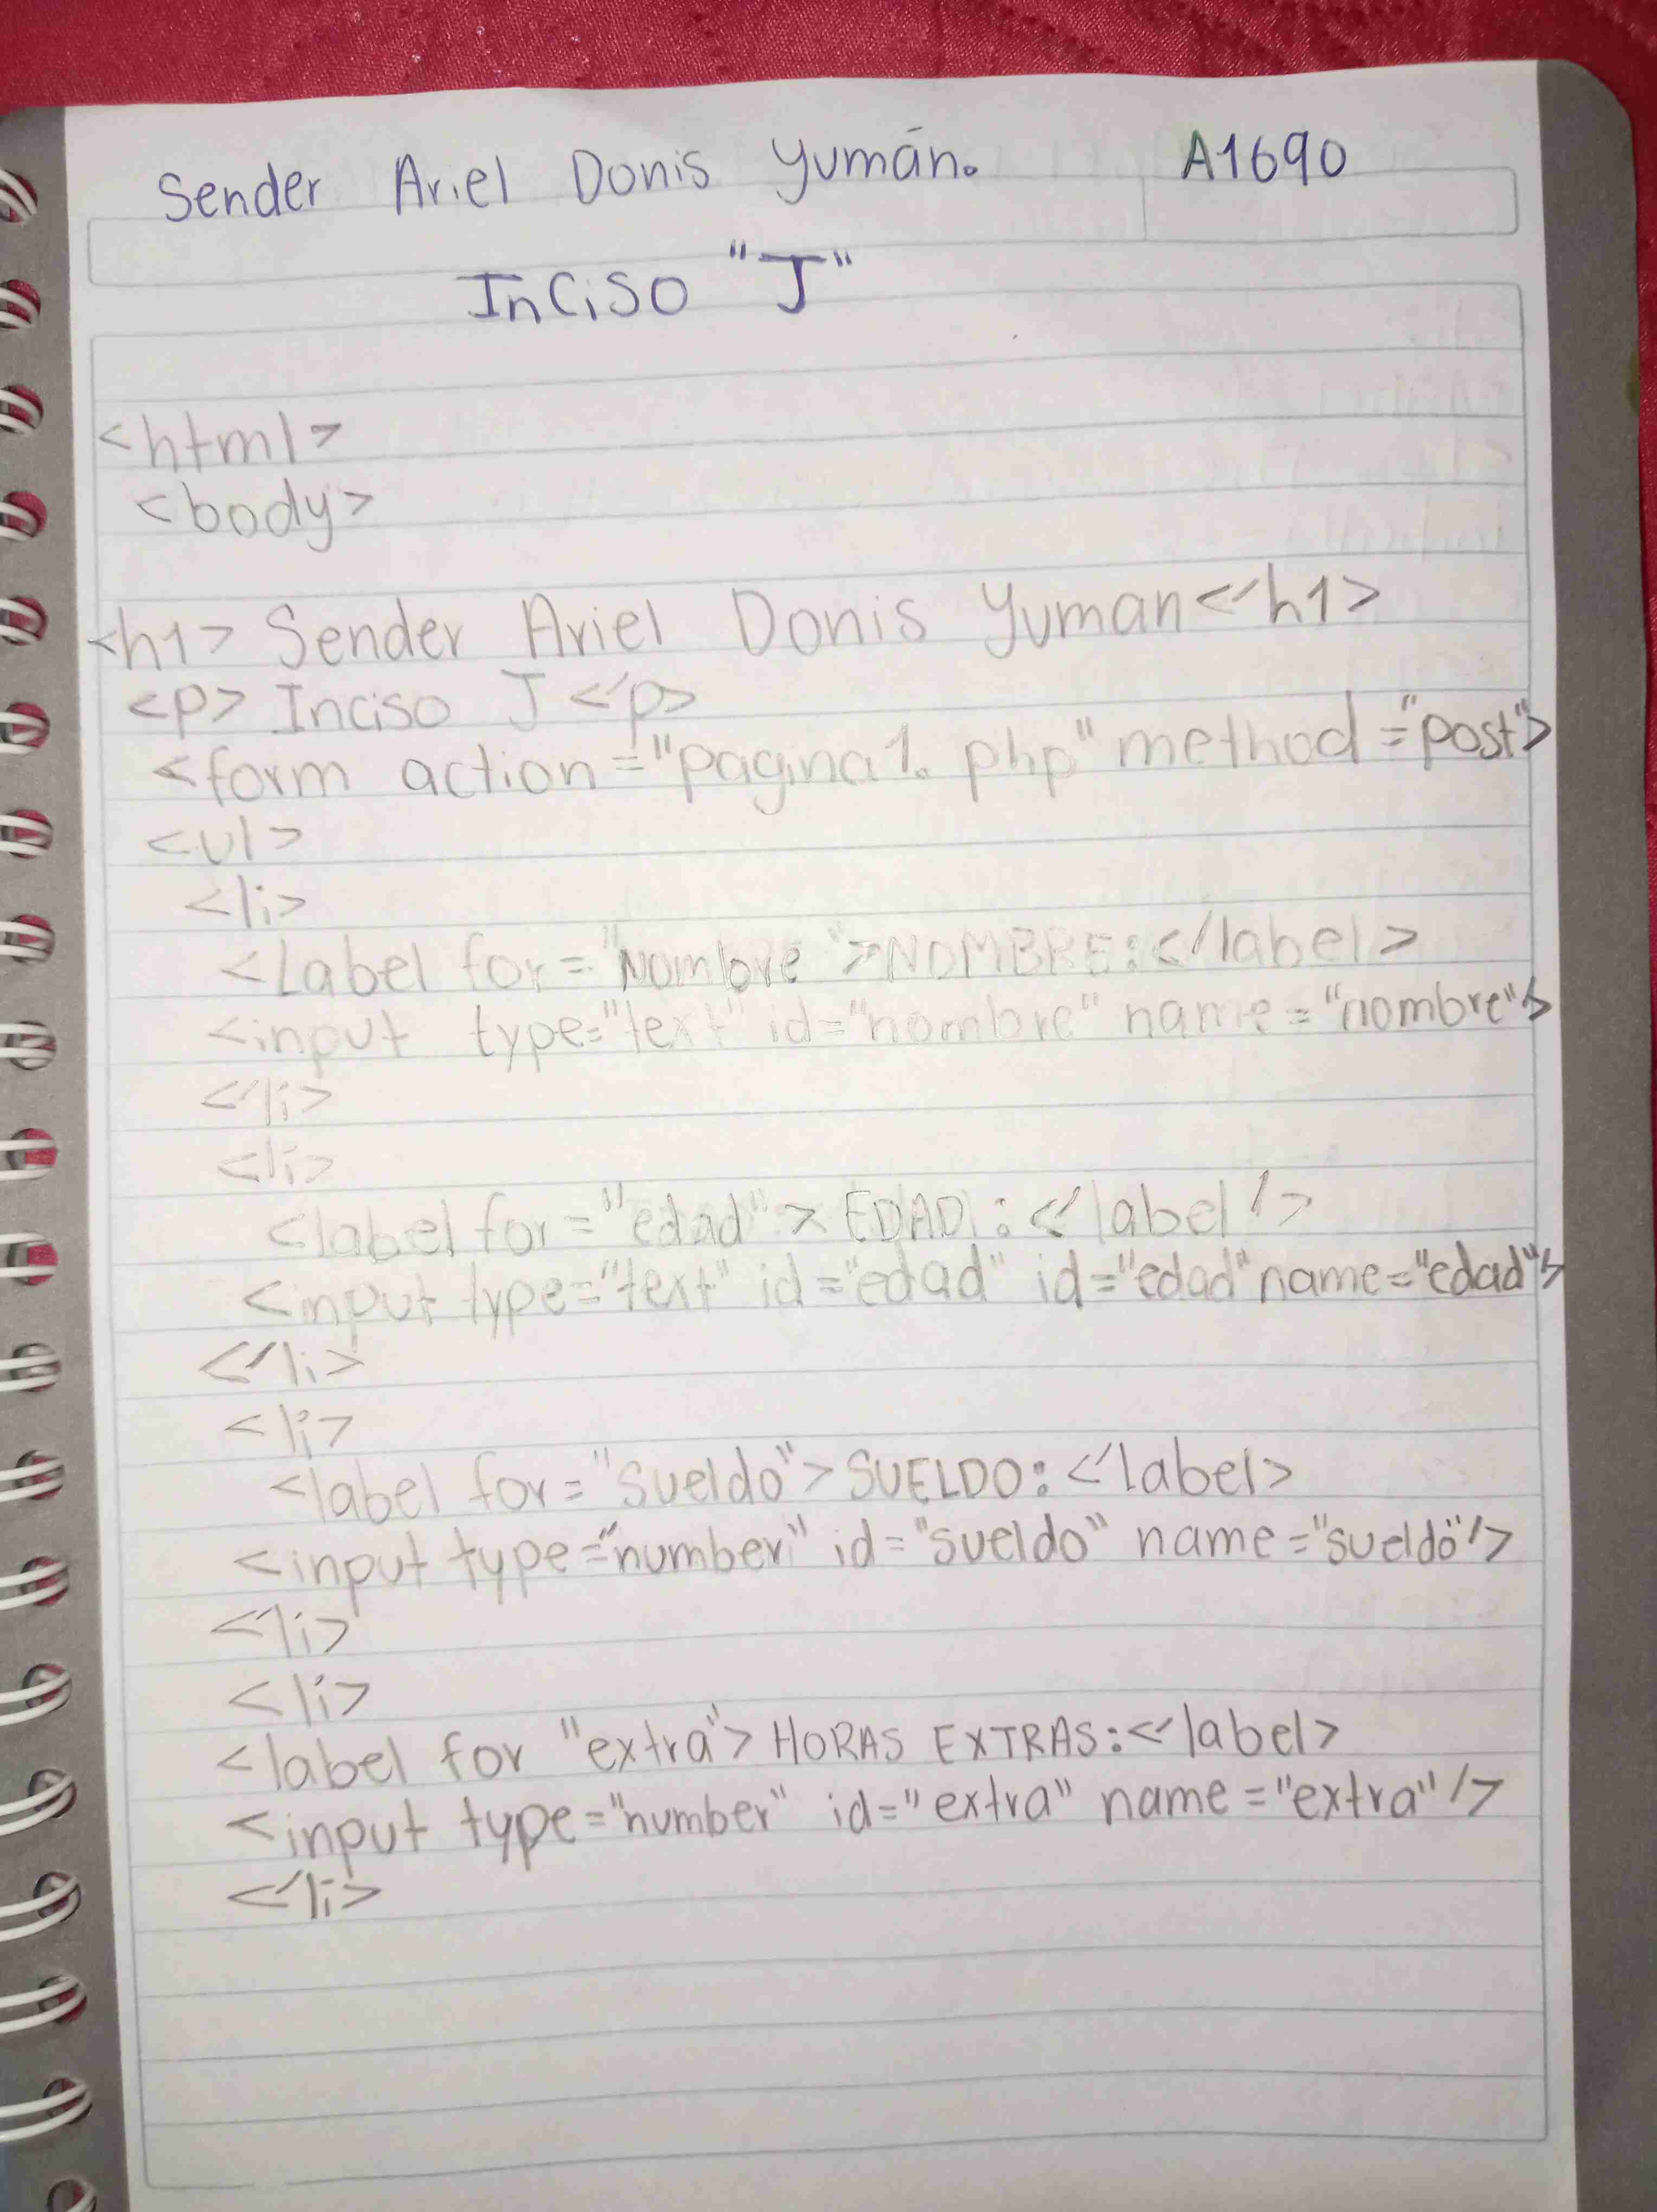 Sender Ariel Donis Yumán. A1690
Inciso "J"
<html>
<body>
<h1> Sender Ariel Donis Yuman</h1>
<p> Inciso J </p>
<form action="pagina1.php" method="post">
<ul>
<li>
<Label for="Nombre">NOMBRE:</label>
<input type="text" id="nombre" name="nombre"/>
</li>
<li>
<label for="edad">EDAD:</label/>
<input type="text" id="edad" id="edad" name="edad"/>
</li>
<li>
<label for="sueldo">SUELDO:</label>
<input type="number" id="sueldo" name="sueldo"/>
</li>
<li>
<label for "extra">HORAS EXTRAS:</label>
<input type="number" id="extra" name="extra"/>
</li>